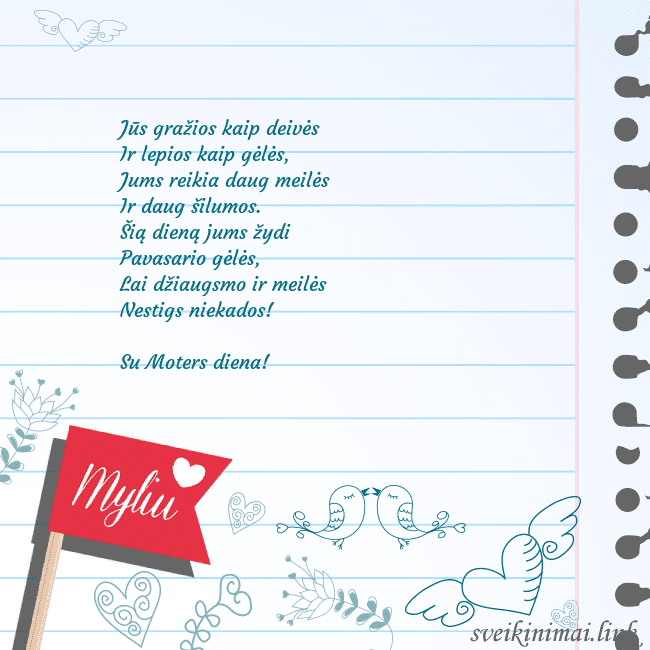 Jūs gražios kaip deivės
Ir lepios kaip gėlės,
Jums reikia daug meilės
Ir daug šilumos.
Šią dieną jums žydi
Pavasario gėlės,
Lai džiaugsmo ir meilės
Nestigs niekados!
Su Moters diena!
Myliu
sveikinimai.link